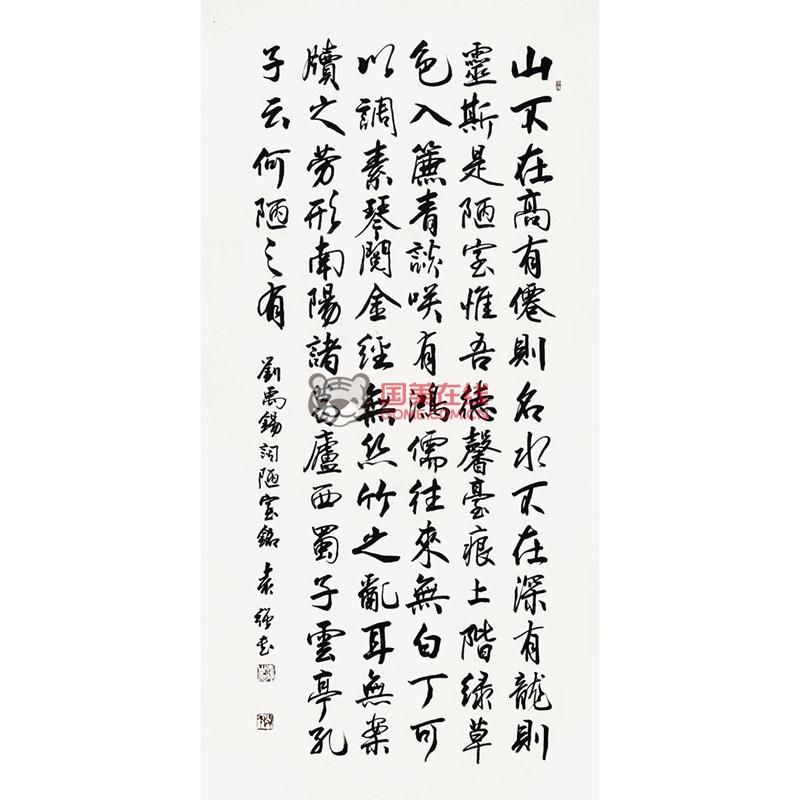 山不在高有僊則名水不在深有龍則
靈斯是陋室惟吾德馨臺痕上階緑草
色入簾青談咲有鴻儒往來無白丁可
以調素琴閱金經無絲竹之亂耳無案
牘之勞形南陽諸葛廬西蜀子雲亭孔
子云何陋之有
劉禹錫詞陋室銘 袁強書
国美在线
GOME.COM.CN